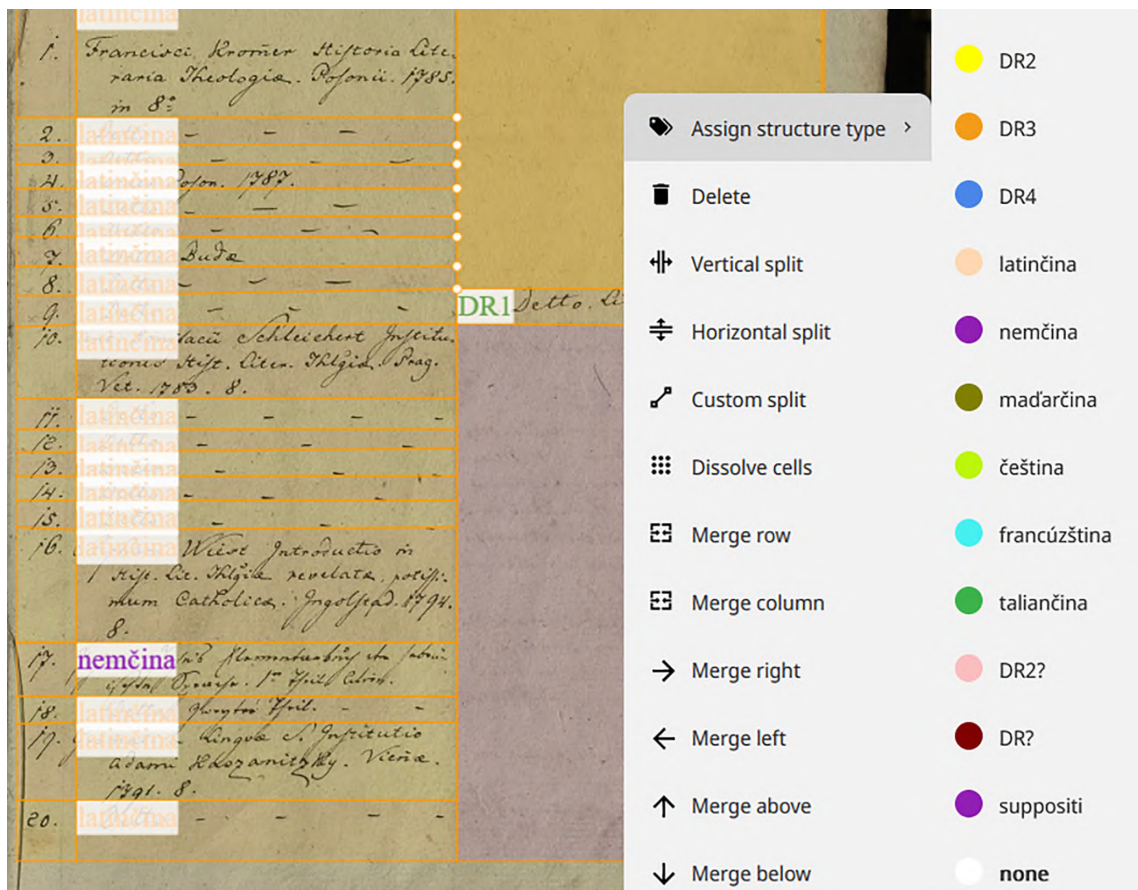 latinčina
1. Francisci Kromer Historia Lite-
raria Theologiæ. Posonii. 1785.
in 8º
2. latinčina – – –
3. latinčina – –
4. latinčina Poson. 1787.
5. latinčina – – –
6. latinčina – – –
7. latinčina Budæ
8. latinčina – – –
9. latinčina – – –
DR1 Detto. Li
10. latinčina Schleichert Institu-
tiones Hist. Liter. Thlgiæ. Prag.
Vet. 1783. 8.
11. latinčina – – – –
12. latinčina – – – –
13. latinčina – – –
14. latinčina – – –
15. latinčina – – –
16. latinčina Wiest Introductio in
Hist. Lit. Thlgiæ revelatæ, potissi-
mum Catholicæ. Ingolstad. 1794.
8.
17. nemčina
18. latinčina – –
19. latinčina Linguæ S. Institutio
Adami Kaszanitzky. Vienæ.
1791. 8.
20. latinčina – – – –
Assign structure type
Delete
Vertical split
Horizontal split
Custom split
Dissolve cells
Merge row
Merge column
Merge right
Merge left
Merge above
Merge below
DR2
DR3
DR4
latinčina
nemčina
maďarčina
čeština
francúzština
taliančina
DR2?
DR?
suppositi
none